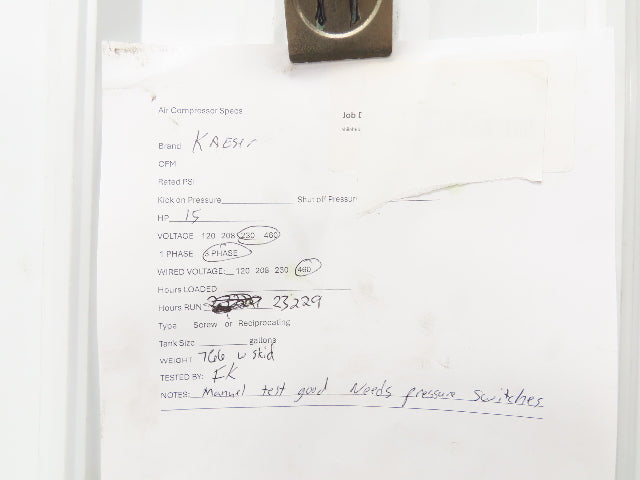 Air Compressor Specs
Job
Brand Kaeser
CFM
Rated PSI
Kick on Pressure Shut off Pressure
HP 15
VOLTAGE 120 208 230 460
1 PHASE 3 PHASE
WIRED VOLTAGE: 120 208 230 460
Hours LOADED
Hours RUN 23229
Type Screw or Reciprocating
Tank Size gallons
WEIGHT 766 w skid
TESTED BY: IK
NOTES: Manual test good Needs pressure switches